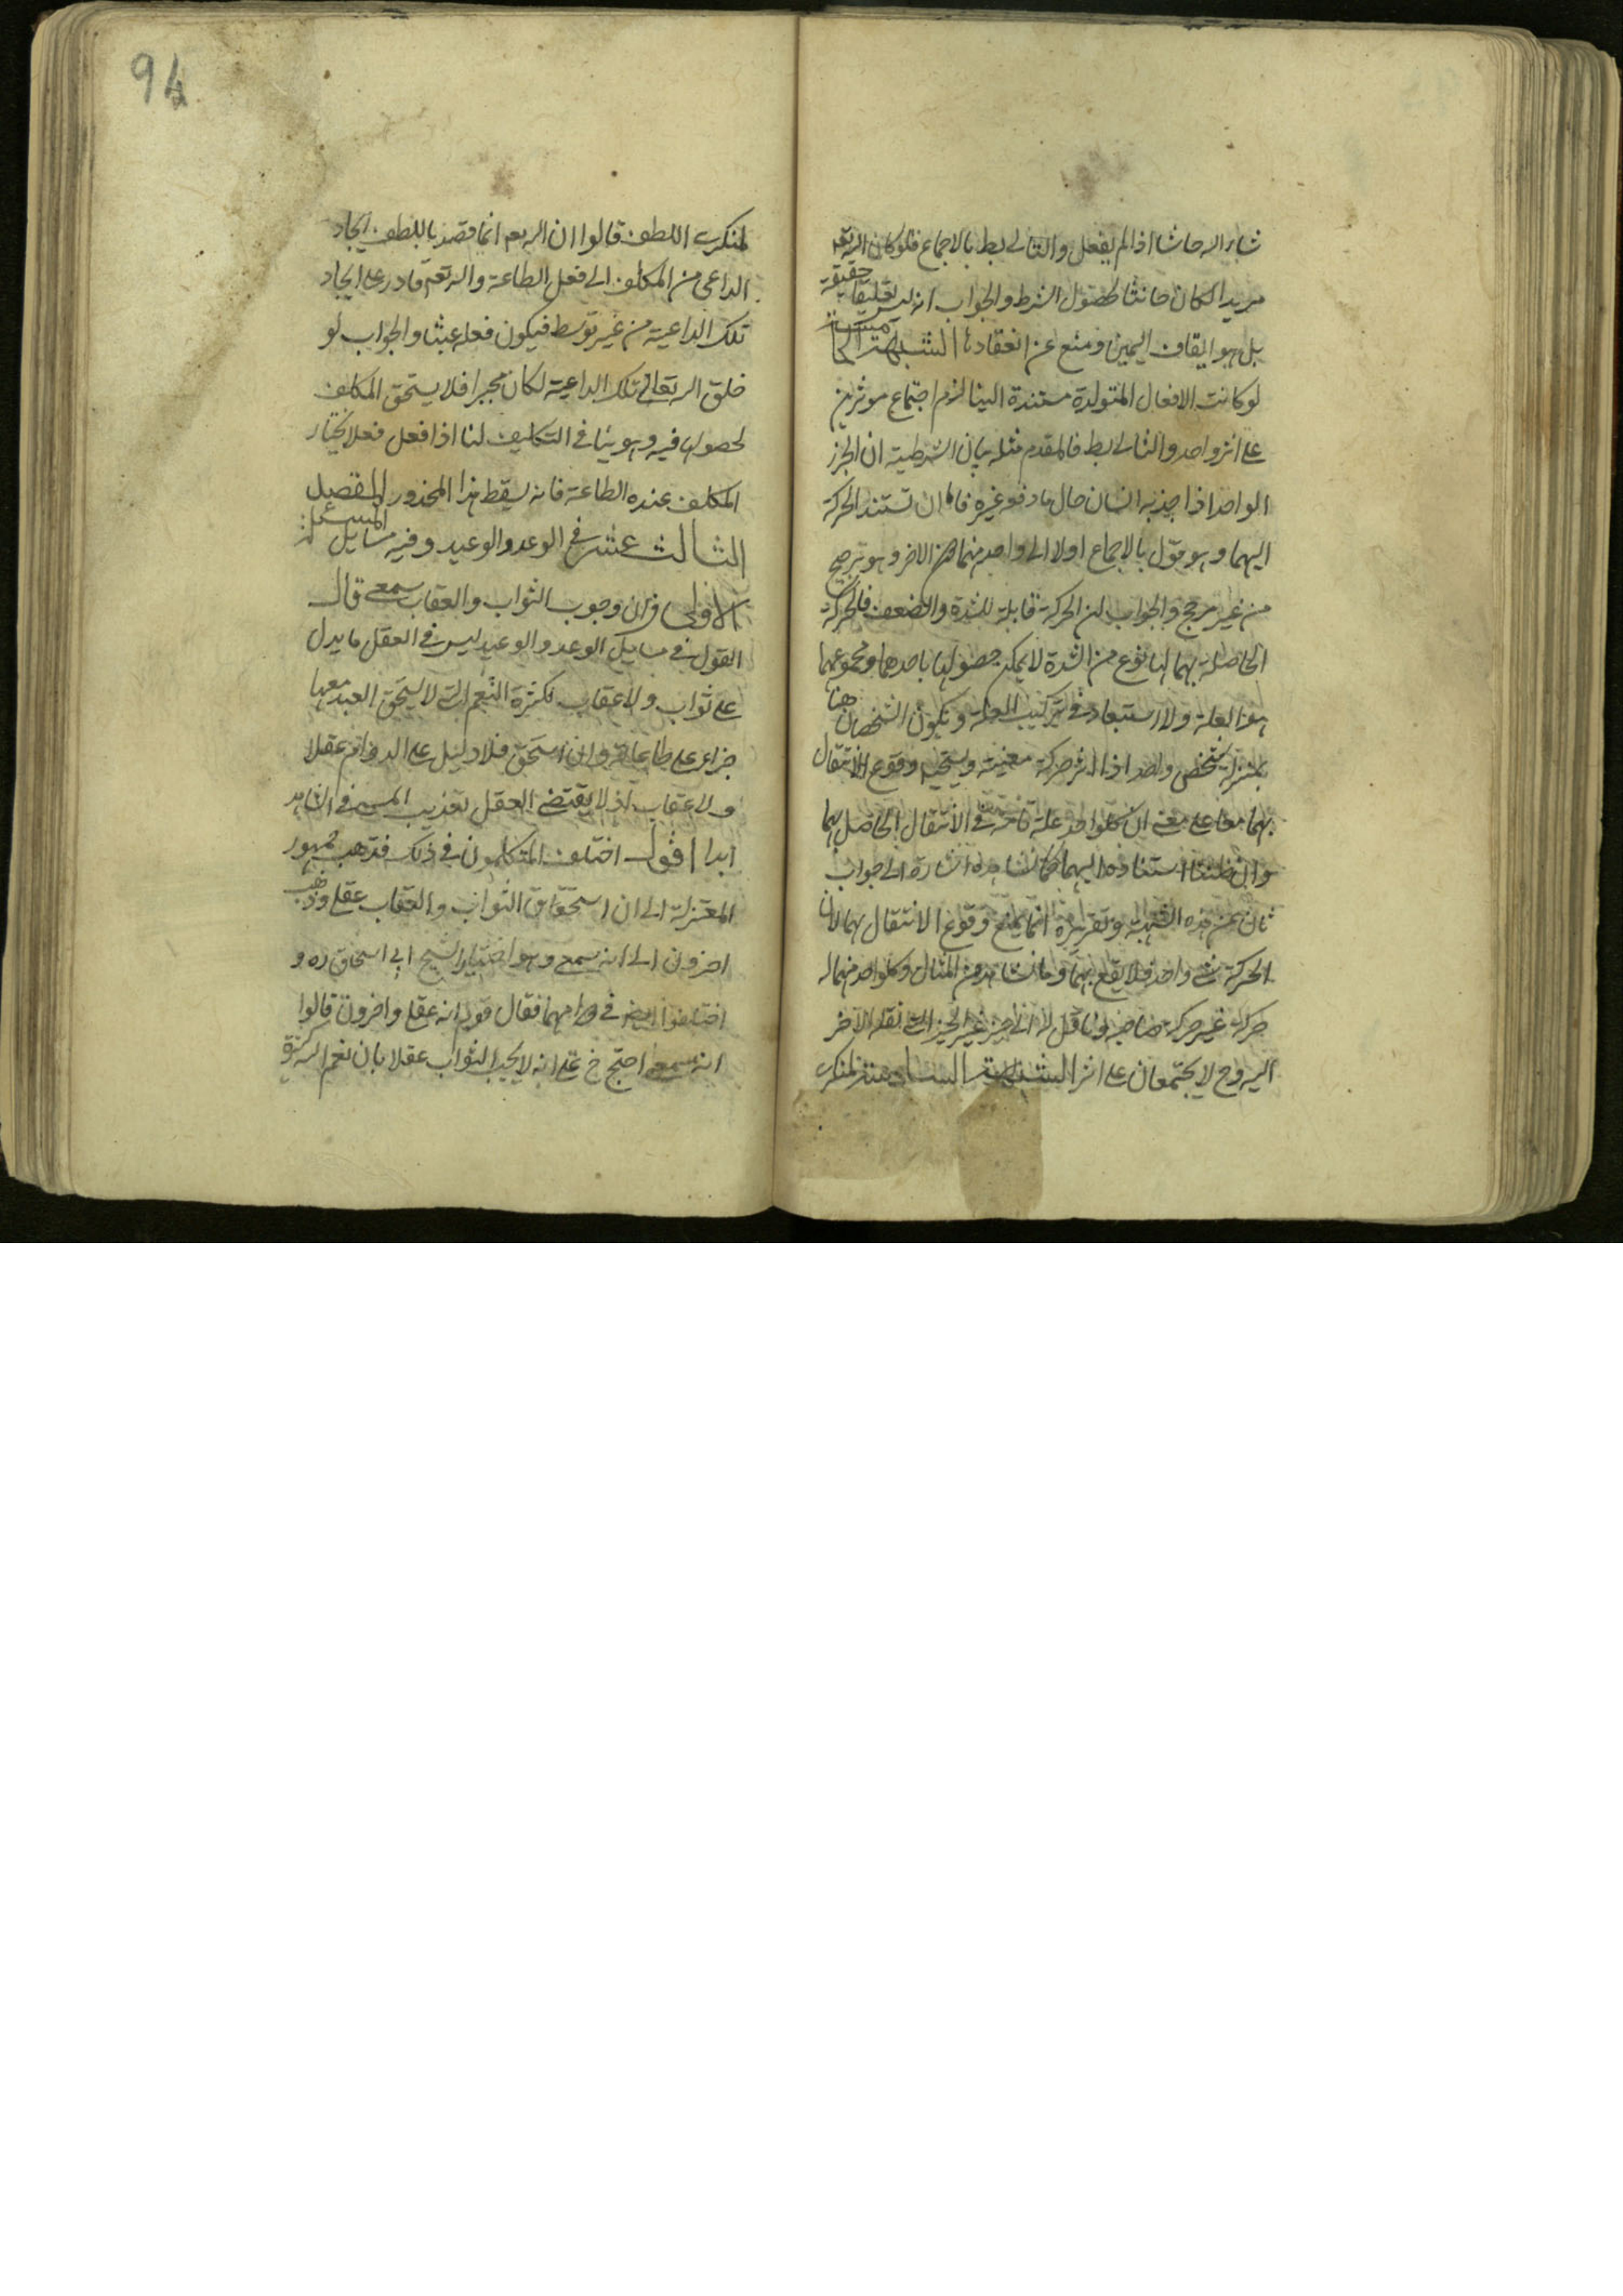 شاء الله حانثا اذا لم يفعل والتالى بط بالاجماع فلو كان الله تعم
مريدا لكان حانثا لحصول الشرط والجواب انه ليس تعليقا حقيقة
بل هو ايقاف اليمين ومنع عن انعقادها الشبهة الخامسة
لو كانت الافعال المتولدة مستندة الينا لزم اجتماع موثرين
على اثر واحد والتالى بط فالمقدم مثله بيان الشرطية ان الجزء
الواحد اذا جذبه انسان حال ما دفعه غيره فاما ان تستند الحركة
اليهما وهو مق بالاجماع اولا الى واحد منهما دون الاخر وهو ترجيح
من غير مرجح والجواب ان الحركة قابلة للشدة والضعف فالحركة
الحاصلة بهما لها نوع من الشدة لا يمكن حصولها باحدهما ومجموعهما
هو العلة ولا استبعاد فى تركيب العلة ويكون الشخصان هنا
بمنزلة شخص واحد اذا اثر حركة معينة ويستحيل وقوع الانتقال
بهما معا على معنى ان كلواحد علة تامة فى الانتقال الحاصل بهما
وان ظننا استناده اليهما كما نشاهده اشارة الى جواب
ثان عن هذه الشبهة وتقريره انما يمنع وقوع الانتقال بهما لان
الحركة شى واحد فلا يقع بهما وما نشاهد من المثال وكلواحد منهما له
حركة غير حركة صاحبه وناقل له الى حيز غير الحيز الذى نقله الاخر
اليه وح لا يجتمعان على اثر الشبهة السادسة لمنكرى
94
لمنكرى اللطف قالوا ان الله تعم انما قصد باللطف ايجاد
الداعى من المكلف الى فعل الطاعة والله تعم قادر على ايجاد
تلك الداعية من غير توسط فيكون فعله عبثا والجواب لو
خلق الله تعالى تلك الداعية لكان مجبرا فلا يستحق المكلف
لحصولها فيه وهو ينافى التكليف اما اذا فعل فعلا يختار
المكلف عنده الطاعة فانه يسقط هذا المحذور المقصد
الثالث عشر فى الوعد والوعيد وفيه مسايل المسئلة
الاولى فى ان وجوب الثواب والعقاب سمعى قال
القول فى مسايل الوعد والوعيد ليس فى العقل ما يدل
على ثواب ولا عقاب لكثرة النعم التى لا يستحق العبد معها
جزاء على طاعاته وان استحق فلا دليل على الدوام عقلا
ولا عقاب اذ لا يقتضى العقل تعذيب المسئ فى الشاهد
ابدا اقول اختلف المتكلمون فى ذلك فذهب جمهور
المعتزلة الى ان استحقاق الثواب والعقاب عقلى وذهب
اخرون الى انه سمعى وهو اختيار الشيخ ابى اسحاق ره و
اختلفوا ايضا فى دوامهما فقال قوم انه عقلى واخرون قالوا
انه سمعى احتج خ على انه لا يجب الثواب عقلا بان نعم الله كثيرة